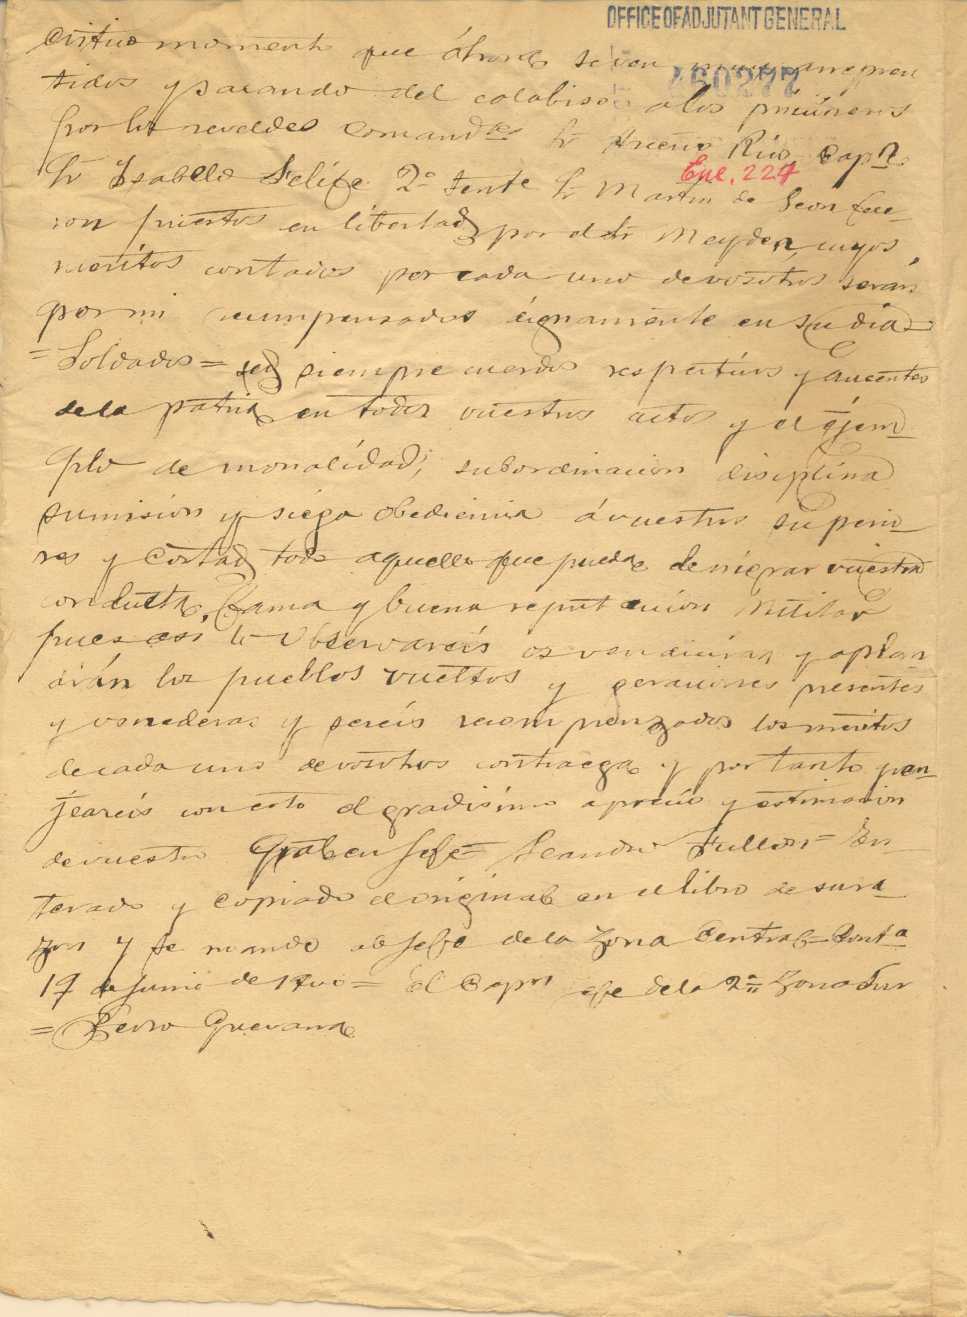 OFFICE OF ADJUTANT GENERAL
460277
momento que ahora se ven muy arrepen
tidos y sacando del calabiso a los prisioneros
por los reveldes Comandtes Sr Rios, Capn
Sr Ysabelo Felife 2º Tente Sr Martin de Leon fue-
Enc. 224
ron puestos en libertad por el Sr Meyder, cuyos
meritos contados por cada uno de vosotros serán
por mi recumpensados dignamente en su dia
=Soldados= sed siempre cuerdos respetuos y amentes
de la patria en todos vuestros actos y el ejem-
plo de moralidad, subordinacion disciplina
sumision y siega obediencia á vuestros superio-
res y cortad todo aquello que pueda denigrar vuestra
conducta, fama y buena reputacion Militar
pues asi lo observareis os vendiciran y aplau-
dirán los pueblos vueltos y geraciones presentes
y venederas y sereis recompenzados los meritos
de cada uno de vosotros contraega y por tanto gran-
jeareis con esto el gradisimo aprecio y estimacion
de vuestro Gral en Jefe= Leandro Fullon= En-
terado y copiado el original en el libro de su ra-
zon y se mando al Jefe de la Zona Central= Conta
17 de Junio de 1900= El Capn Jefe de la 2ª Zona Sur
= Pedro Guevara